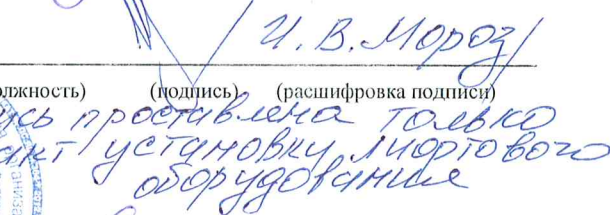 И. В. Мороз/
(подпись) (расшифровка подписи)
проставлена только
установку лифтового
оборудования